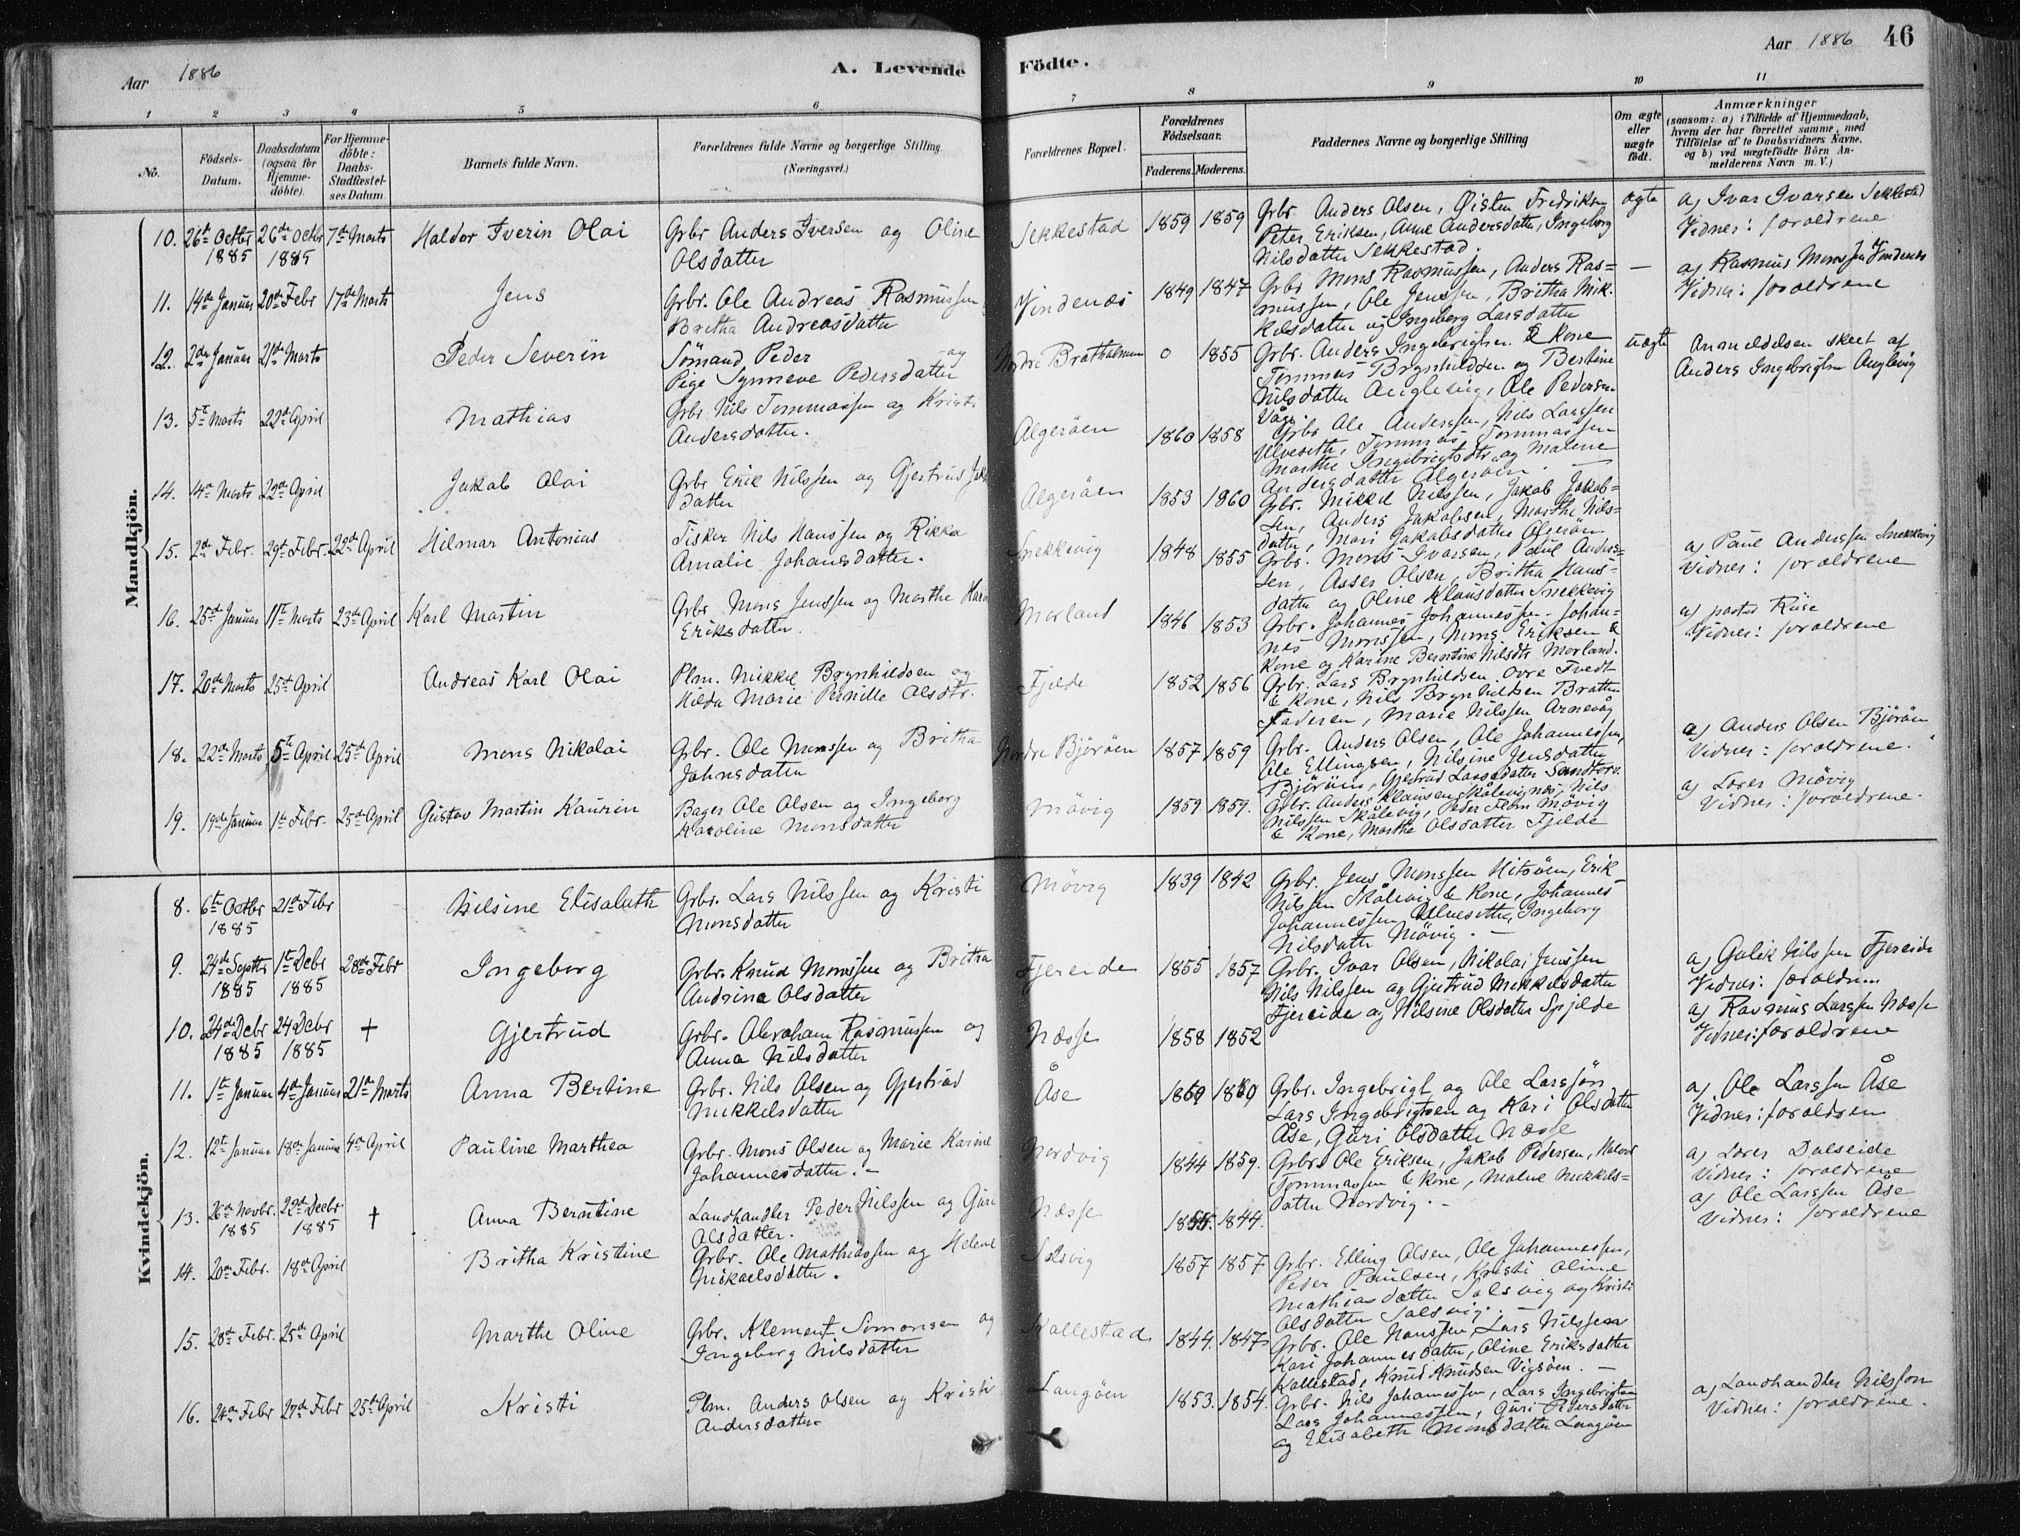 Aar 1886
A. Levende Födte.
Aar 1886 46
1 2 3 4 5 6 7 8 9 10 11
No.
Födsels-Datum.
Daabsdatum (ogsaa for Hjemme-döbte).
For Hjemme-döbte: Daabs-Stadfæstel-ses Datum
Barnets fulde Navn.
Forældrenes fulde Navne og borgerlige Stilling (Næringsvei.)
Forældrenes Bopæl.
Forældrenes Födselsaar.
Faderens. Moderens.
Faddernes Navne og borgerlige Stilling
Om ægte eller uægte födt.
Anmærkninger
(saasom: a) i Tilfælde af Hjemmedaab, hvem der har forrettet samme, med Tilföielse af to Daabsvidners Navne, og b) ved uægtefödte Börn An-melderens Navn m. V.)
Mandkjön.
10. 26de Octbr 1885 26de Octbr 1885 7de Marts Haldor Iverin Olai
Grbr Anders Iversen og Oline
Olsdatter
Sekkestad 1859 1859
Grbr Anders Olsen, Øisten Fredriksen
Peter Eriksen, Anne Andersdatter, Ingeborg
Nilsdatter Sekkestad.
ægte
a) Ivar Ivarsen Sekkestad
Vidner: forældrene
11. 14de Januar 20de Febr 17de Marts Jens
Grbr. Ole Andreas Rasmussen
Britha Andreasdatter
Vindenæs 1849 1847
Grbr Mons Rasmussen, Anders Ras=
mussen, Ole Jenssen, Britha Mik-
kelsdatter og Ingeborg Larsdatter
—
a) Rasmus Monssen Vindenes
Vidner: forældrene
12. 2den Januar 21de Marts Peder Severin
Sömand Peder og
Pige Synneve Pedersdatter
Nordre Bratholmen 0 1855
Grbr. Anders Ingebrigtsen & Kone
Tommas Brynhildsen og Bertine
Nilsdatter Anglevig, Ole Pedersen
Våge.
uægte
Anmeldelsen skeet af
Anders Ingebrigtsen Anglevig
13. 5te Marts 22de April Mathias
Grbr Nils Tommassen og Kristi
Andersdatter.
Algeröen 1860 1858
Grbr Ole Anderssen, Nils Larssen
Ulveseth, Tommas Tommassen
Marthe Ingebrigtsdtr og Malene
Andersdatter Algeröen. —
14. 14de Marts 22de April Jakob Olai
Grbr Erik Nilssen og Gjertrud
datter
Algeröen 1853 1860
Grbr. Mikkel Nilssen, Jakob Jakob-
sen, Anders Jakobsen, Marthe Nils-
datter, Mari Jakobsdatter Algeröen
15. 2de Febr. 29de Febr. 22de April Hilmar Antonius
Fisker Nils Hanssen og Rikka
Amalie Johansdatter.
Snekkevig 1848 1855
Grbr. Mons Ivarsen, Paul Anders=
sen, Asser Olsen, Britha Hans-
datter og Oline Klausdatter Snekkevig
a) Paul Anderssen Snekkevig
Vidner: forældrene
16. 25de Januar 11te Marts 23de April Karl Martin
Grbr Mons Jenssen og Marthe
Eriksdatter.
Morland 1846 1853
Grbr. Johannes Johannessen, Johan-
nes Monssen, Mons Eriksen &
Kone og Karine Berntine Nilsdtr Morland.
a) pastor Ruse
Vidner: forældrene
17. 20de Marts 25de April Andreas Karl Olai
Plm. Mikkel Brynhildsen og
Hilda Marie Pernille Olsdtr.
Fjelde 1852 1856
Grbr. Lars Brynhildsen Övre Tvedt
& Kone, Nils Brynhildsen Bratten
Faderen, Marie Nilssen Arnevåg
18. 22de Marts 5te April 25de April Mons Nikolai
Grbr. Ole Monssen og Britha
Johnsdatter
Nordre Björöen 1857 1859
Grbr. Anders Olsen, Ole Johannessen,
Ole Ellingsen, Nilsine Jensdatter
Björöen, Gjertrud Larsdatter Sandtorv.
a) Anders Olsen Björöen
Vidner: forældrene.
19. 19de Januar 1te Febr. 25de April Gustav Martin Kaurin
Bager Ole Olsen og Ingeborg
Karoline Monsdatter
Mövig 1859 1859.
Grbr. Anders Klausen Skålevignes, Nils
Nilssen Skålevig, Peder Flem Mövig
& Kone, Marthe Olsdatter Fjelde
a) Lærer Mövig
Vidner: forældrene.
Kvindekjön.
8. 6te Octbr 1885 21de Febr Nilsine Elisabeth
Grbr. Lars Nilssen og Kristi
Monsdatter
Mövig 1839 1842
Grbr. Jens Monssen Hitsöen, Erik
Nilssen Skålevig & Kone, Johannes
Johannessen Ulvesetter, Ingeborg
Nilsdatter Mövig. —
9. 24de Septbr 1885 1te Debr 1885 28de Febr Ingeborg
Grbr. Knud Monssen og Britha
Andrine Olsdatter
Fjereide 1855 1857
Grbr. Ivar Olsen, Nikolai Jenssen
Nils Nilssen og Gjertrud Mikkelsdatter
Fjereide og Nilsine Olsdatter Spjelde
a) Gulek Nilssen Fjereide
Vidner: forældrene
10. 24de Debr 1885 24 Debr 1885 † Gjertrud
Grbr. Abraham Rasmussen og
Anna Nilsdatter
Næsse 1858 1852
a) Rasmus Larssen Næsse
Vidner: forældrene
11. 1te Januar 4de Januar 21de Marts Anna Bertine
Grbr. Nils Olsen og Gjertrud
Mikkelsdatter
Åse 1860 1860
Grbr. Ingebrigt og Ole Larssön
Lars Ingebrigtsen og Kari Olsdatter
Åse, Guri Olsdatter Næsse
a) Ole Larssen Åse
Vidner: forældrene
12. 12te Januar 18de Januar 4de April Pauline Marthea
Grbr. Mons Olsen og Marie Karine
Johannesdatter. —
Nordvig 1844 1859.
Grbr. Ole Eriksen, Jakob Pedersen, Halvor
Tommassen & Kone, Malene Mikkels-
datter Nordvig. —
a) Lærer Dalseide
Vidner: forældrene
13. 26de Novbr. 1885 29de Decbr 1885 † Anna Berntine
Landhandler Peder Nilssen og Guri
Olsdatter.
Næsse 1855 1844.
a) Ole Larssen Åse
Vidner: forældrene
14. 20de Febr. 18de April Britha Kristine
Grbr. Ole Mathiassen og Helene
Mikaelsdatter.
Solsvig 1857 1857
Grbr. Elling Olsen, Ole Johannessen,
Peder Paulsen, Kristi Oline
Mathiasdatter Solsvig og Kristi
Olsdatter Solsvig. —
15. 28de Febr. 25de April Marthe Oline
Grbr. Klement Simonsen og
Ingeborg Nilsdatter
Kallestad 1844. 1847
Grbr. Ole Hanssen, Lars Nilssen
Kari Johannesdatter, Oline Eriksdatter
Kallestad, Knud Knudsen Vigsöen. —
16. 24de Febr 27de Febr 25de April Kristi
Plm. Anders Olsen og Kristi
Andersdatter
Langöen 1853. 1854.
Grbr. Nils Johannessen, Lars Ingebrigtsen
Lars Johannessen, Guri Pedersdatter
og Elisabeth Monsdatter Langöen
a) Landhandler Nilssen
Vidner: forældrene.